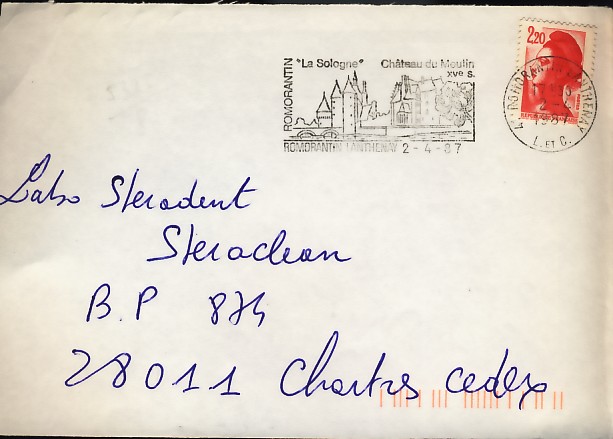 "La Sologne" Château du Moulin
XVe S.
ROMORANTIN
ROMORANTIN LANTHENAY 2-4-87
2,20
ROMORANTIN LANTHENAY
L. ET C.
Labo Steradent
Steraclean
B.P 874
28011 Chartres cedex